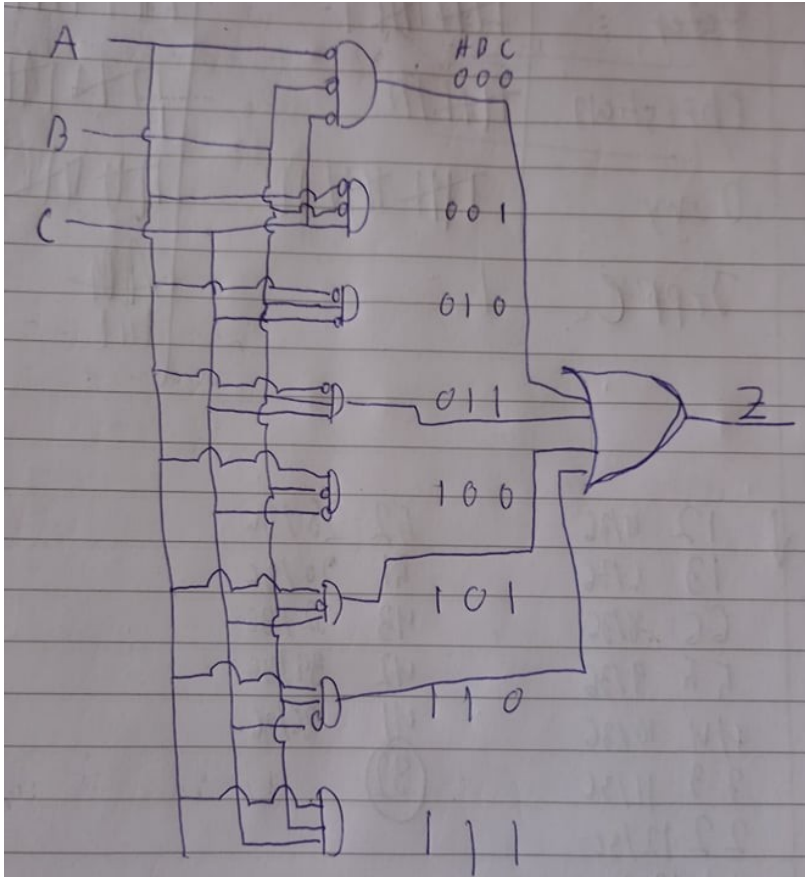 A
A B C
000
B
C
001
010
011
Z
100
101
110
111